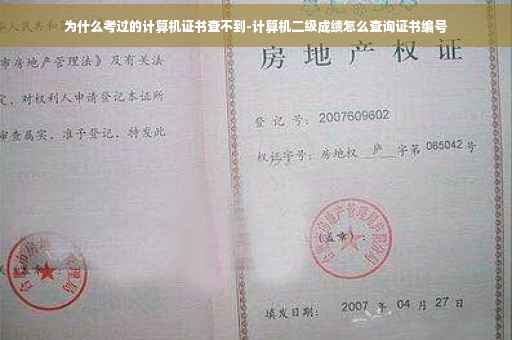 为什么考过的计算机证书查不到-计算机二级成绩怎么查询证书编号
人民共和
市房地产管理法》及有关法
定，对权利人申请登记本证所
审查属实，准予登记，特发此
房地产权证
登记号：2007609602
权证字号：房地权 庐 字第 065042 号
（盖章）：
填发日期：2007 年 04 月 27 日